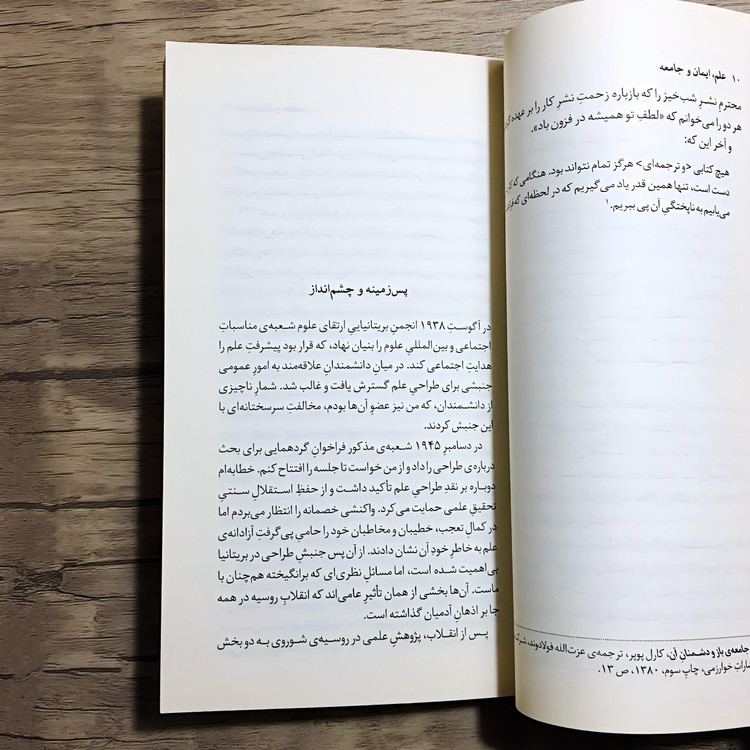 ۱۰ علم، ایمان و جامعه
محترمِ نشرِ شب‌خیز را که بازباره زحمتِ نشرِ کار را بر عهده
هر دو را می‌خوانم که «لطفِ تو همیشه در فزون باد».
و آخر این که:
هیچ کتابی <و ترجمه‌ای> هرگز تمام نتواند بود. هنگامی که
دست است، تنها همین قدر یاد می‌گیریم که در لحظه‌ای که
می‌یابیم به ناپختگیِ آن پی ببریم.۱
جامعه‌ی باز و دشمنانِ آن، کارل پوپر، ترجمه‌ی عزت‌الله فولادوند، شرکت
خوارزمی، چاپِ سوم، ۱۳۸۰، ص ۱۳.
پس‌زمینه و چشم‌انداز
در آگوستِ ۱۹۳۸ انجمنِ بریتانیاییِ ارتقای علوم شعبه‌ی مناسباتِ
اجتماعی و بین‌المللیِ علوم را بنیان نهاد، که قرار بود پیشرفتِ علم را
هدایتِ اجتماعی کند. در میانِ دانشمندانِ علاقه‌مند به امورِ عمومی
جنبشی برای طراحیِ علم گسترش یافت و غالب شد. شمارِ ناچیزی
از دانشمندان، که من نیز عضوِ آن‌ها بودم، مخالفتِ سرسختانه‌ای با
این جنبش کردند.
در دسامبرِ ۱۹۴۵ شعبه‌ی مذکور فراخوانِ گردهمایی برای بحث
درباره‌ی طراحی را داد و از من خواست تا جلسه را افتتاح کنم. خطابه‌ام
دوباره بر نقدِ طراحیِ علم تأکید داشت و از حفظِ استقلالِ سنتیِ
تحقیقِ علمی حمایت می‌کرد. واکنشی خصمانه را انتظار می‌بردم اما
در کمالِ تعجب، خطیبان و مخاطبان خود را حامیِ پی‌گرفتِ آزادانه‌ی
علم به خاطرِ خودِ آن نشان دادند. از آن پس جنبشِ طراحی در بریتانیا
بی‌اهمیت شده است، اما مسائلِ نظری‌ای که برانگیخته هم‌چنان با
ماست. آن‌ها بخشی از همان تأثیرِ عامی‌اند که انقلابِ روسیه در همه
جا بر اذهانِ آدمیان گذاشته است.
پس از انقلاب، پژوهشِ علمی در روسیه‌ی شوروی به دو بخش